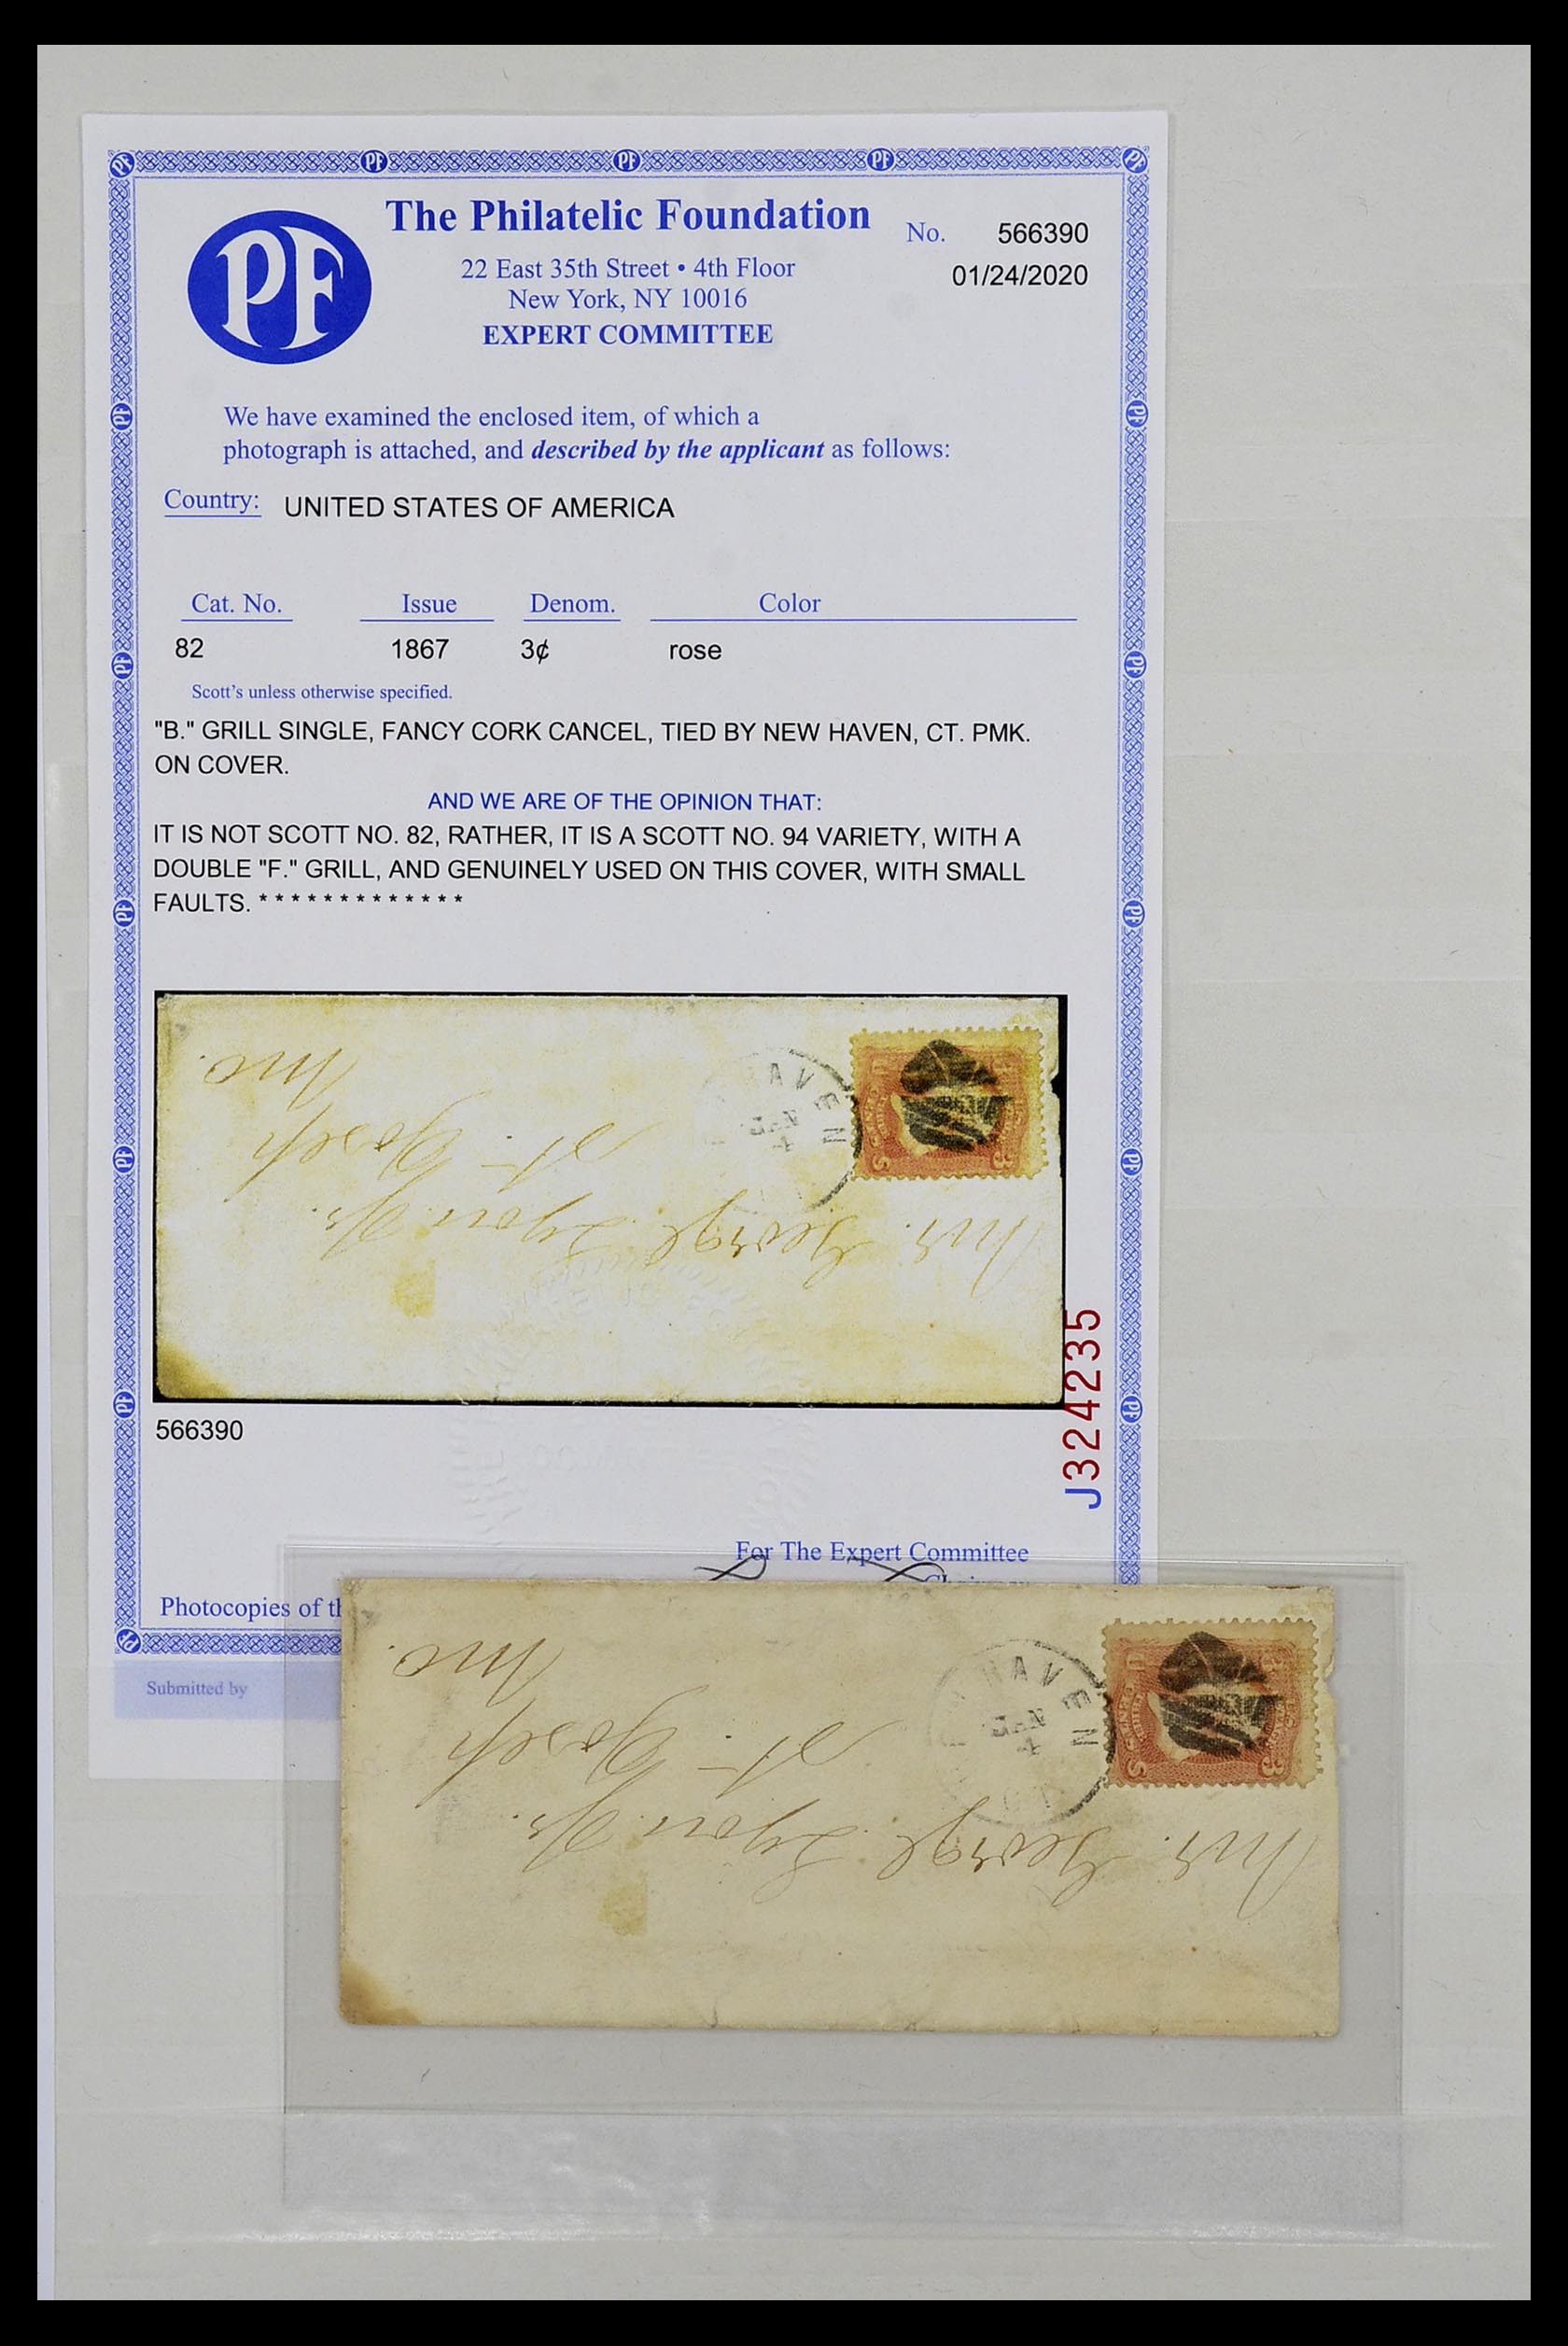 PF
The Philatelic Foundation
No. 566390
22 East 35th Street • 4th Floor
01/24/2020
New York, NY 10016
EXPERT COMMITTEE
We have examined the enclosed item, of which a
photograph is attached, and described by the applicant as follows:
Country: UNITED STATES OF AMERICA
Cat. No. Issue Denom. Color
82 1867 3¢ rose
Scott's unless otherwise specified.
"B." GRILL SINGLE, FANCY CORK CANCEL, TIED BY NEW HAVEN, CT. PMK.
ON COVER.
AND WE ARE OF THE OPINION THAT:
IT IS NOT SCOTT NO. 82, RATHER, IT IS A SCOTT NO. 94 VARIETY, WITH A
DOUBLE "F." GRILL, AND GENUINELY USED ON THIS COVER, WITH SMALL
FAULTS. * * * * * * * * * * * * *
HAVEN
MAR
4
Mr. George Lyon Jr.
St. Joseph
Mo.
J324235
566390
For The Expert Committee
Chairman
Photocopies of th
Submitted by
HAVEN
MAR
4
Mr. George Lyon Jr.
St. Joseph
Mo.